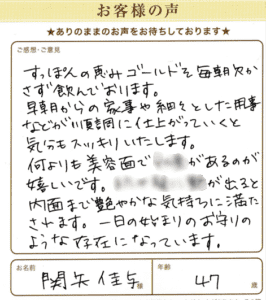 お客様の声
★ありのままのお声をお待ちしております★
ご感想・ご意見
すっぽんの恵みゴールドを毎朝欠か
さず飲んでおります。
早朝からの家事や細々とした用事
などが順調に仕上がっていくと
気分もスッキリいたします。
何よりも美容面で があるのが
嬉しいです。 が出ると
内面まで艶やかな気持ちに満た
されます。一日の始まりのお守りの
ような存在になっています。
お名前 関矢佳与様 年齢 47歳